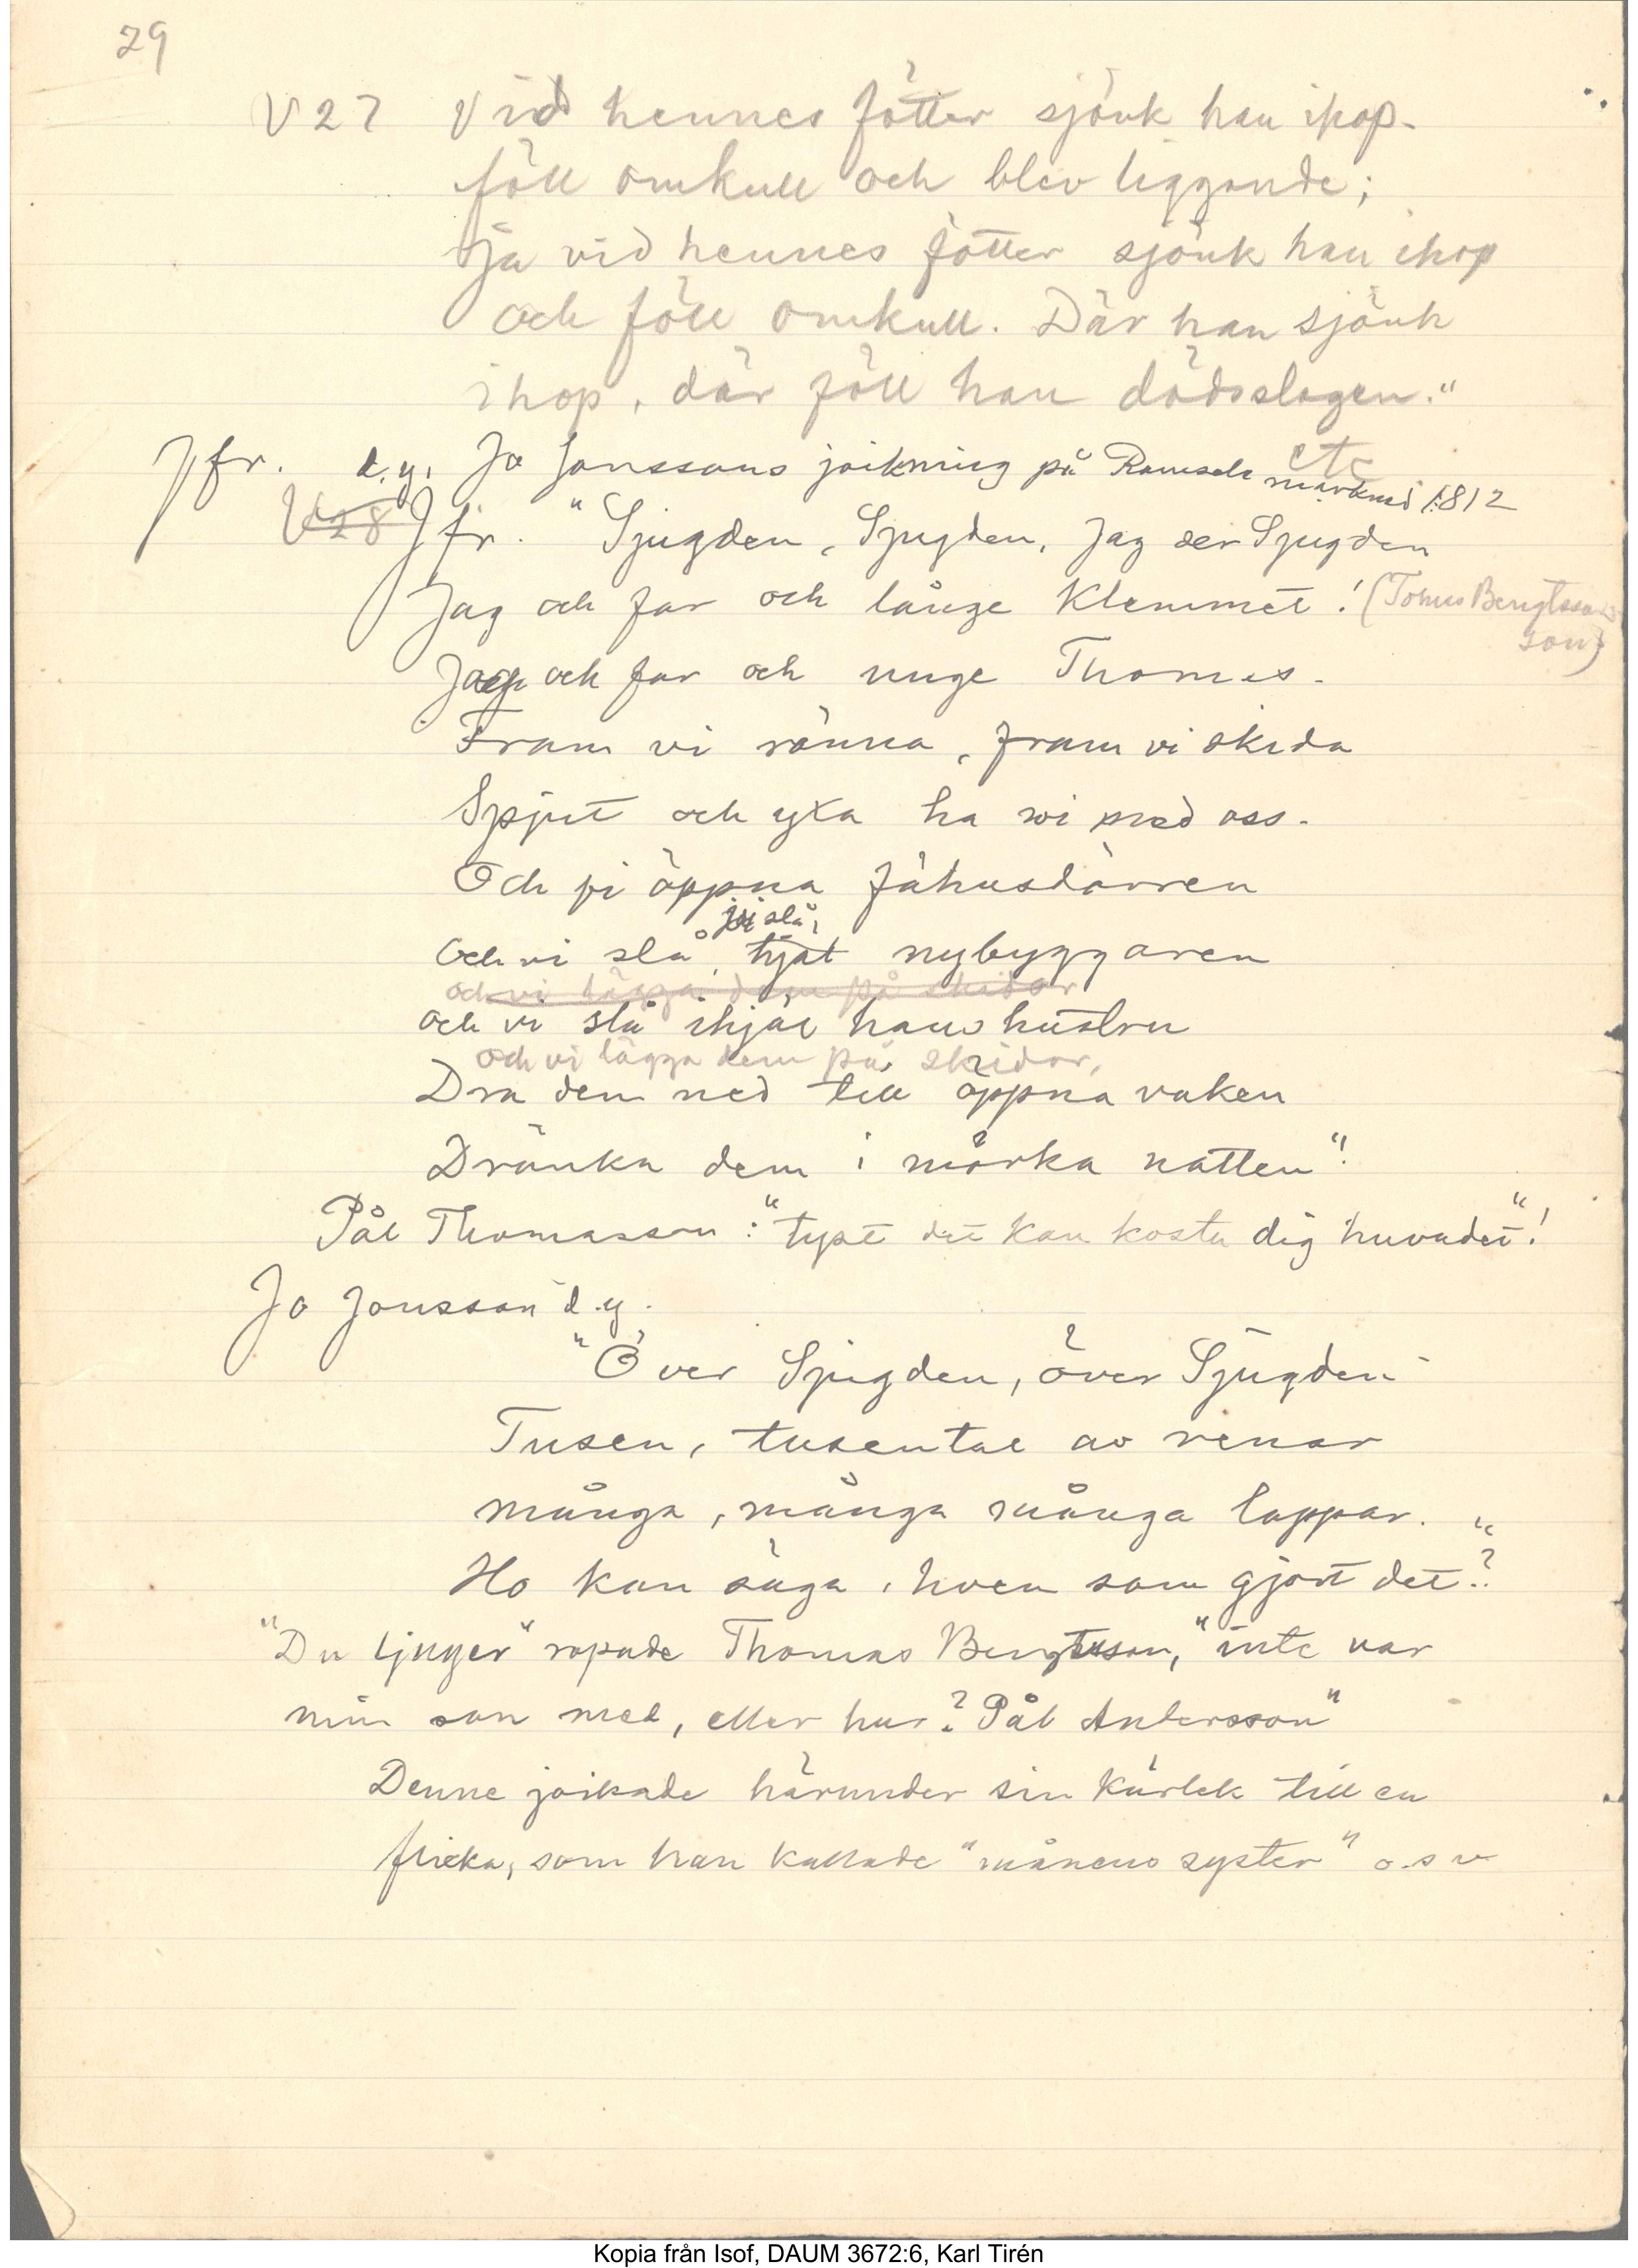 29
V 27 Vid hennes fötter sjönk han ihop.
föll omkull och blev liggande;
Ja vid hennes fötter sjönk han ihop
och föll omkull. Där han sjönk
ihop, där föll han dödsslagen."
Jfr. d.y. Jo Jonssons joikning på Ramsele marknad 1812 etc
V 28 Jfr. "Sjugden, Sjugden, Jag ser Sjugden
Jag och far och långe Klemmet! (Tomas Bengtssons son)
Jag och far och unge Thomas.
Fram vi ränna, fram vi skida
Spjut och yxa ha wi med oss.
Och vi öppna fähusdörren
vi slå,
Och vi slå, ihjäl nybyggaren
och vi lägga dem på skidor
och vi slå ihjäl hans hustru
och vi lägga dem på skidor,
Dra dem ned till öppna vaken
Dränka dem i mörka natten"!
Pål Thomasson: "tyst det kan kosta dig huvudet"!
Jo Jonsson d.y.
"Över Sjugden, över Sjugden
Tusen, tusental av renar
många, många många lappar.
Ho kan säga, hven som gjort det?"
"Du ljuger" ropade Thomas Bengtsson, "inte var
min son med, eller hur? Pål Andersson"
Denne joikade härunder sin kärlek till en
flicka, som han kallade "månens syster" o.s v
Kopia från Isof, DAUM 3672:6, Karl Tirén